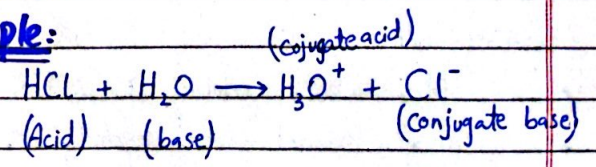 ple:
(cojugate acid)
HCl + H₂O ⟶ H₃O⁺ + Cl⁻
(Acid) (base) (conjugate base)